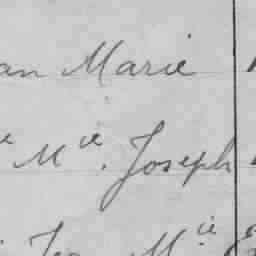 an Marie
e Mie. Joseph
Mie